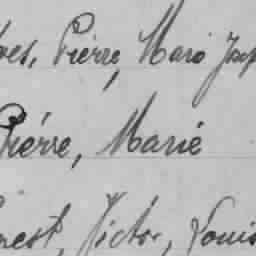 Pierre, Marie Josp
Pierre, Marie
nest, Victor, Louis